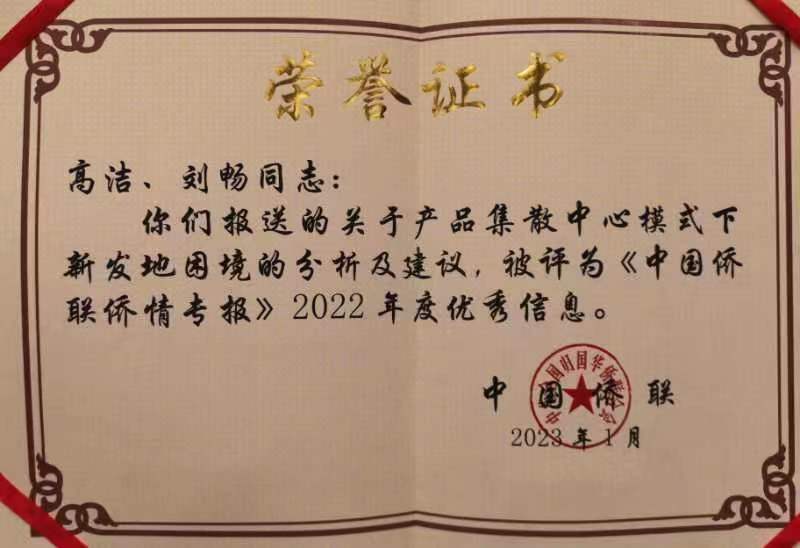 荣誉证书
高洁、刘畅同志：
你们报送的关于产品集散中心模式下
新发地困境的分析及建议，被评为《中国侨
联侨情专报》2022年度优秀信息。
中国侨联
中华全国归国华侨联合会
2023年1月